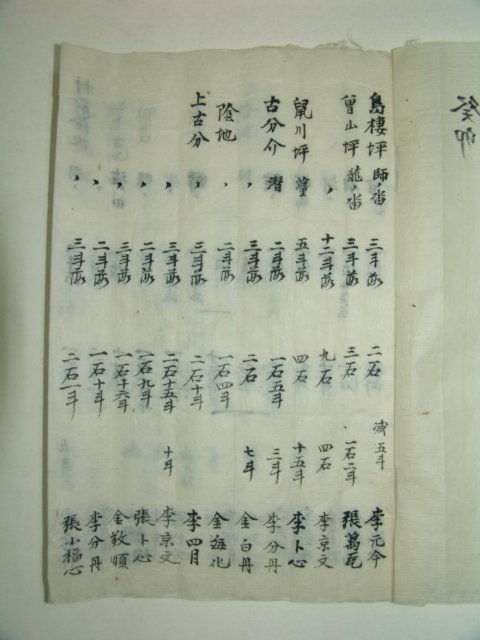 癸卯
鳥棲坪 師字畓 三斗落 二石 減五斗 李元今
曾山坪 龍字畓 三斗落 三石 一石二斗 張萬
〃 十二斗落 九石 四石 李京文
鼠川坪 五斗落 四石 十五斗 李卜心
古分介 潛 二斗落 一石五斗 三斗 李分丹
〃 三斗落 二石 七斗 金白丹
陰地 〃 二斗落 一石四斗 金 化
上古分 〃 三斗落 二石十斗 李四月
〃 三斗落 二石十五斗 十斗 李京文
〃 二斗落 一石九斗 張卜心
〃 三斗落 一石十六斗 金敬順
〃 二斗落 一石十斗 李分丹
〃 三斗落 二石一斗 張小福心